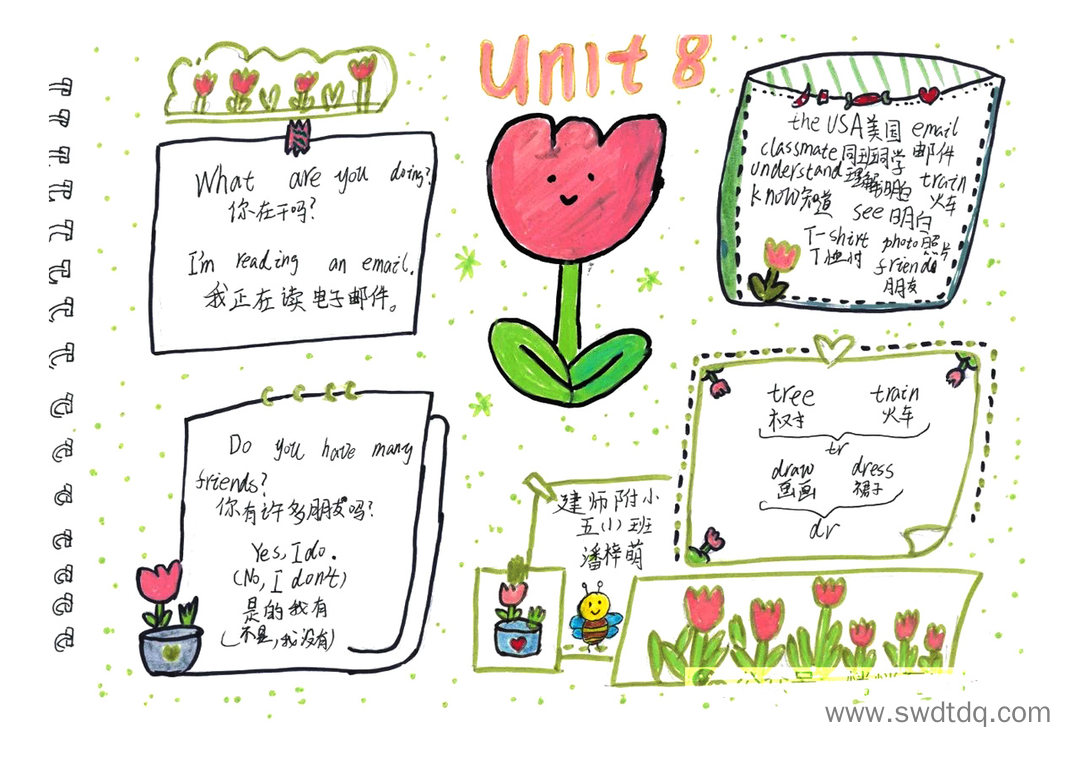 Unit 8
What are you doing?
你在干吗?
I'm reading an email.
我正在读电子邮件。
the USA美国 email
classmate同班同学 邮件
understand理解明白 train
know知道 火车
see明白
T-shirt photo照片
T恤衬 friends
朋友
Do you have many
friends?
你有许多朋友吗?
Yes, I do.
(No, I don't)
是的我有
(不是,我没有)
tree train
权子 火车
tr
draw dress
画画 裙子
dr
建师附小
五(1)班
潘梓萌
www.swdtdq.com